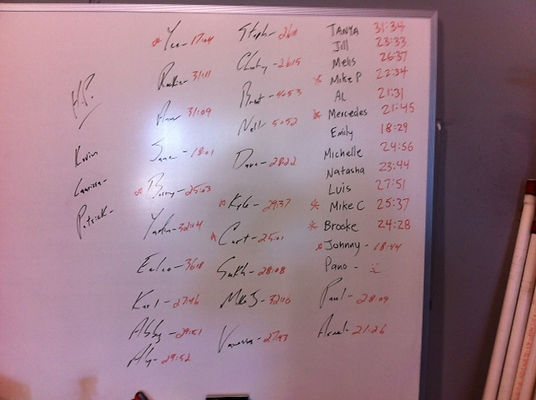 H.P.
Kevin
Larissa
Patrick -
* Yee - 17:44
31:11
31:09
18:01
* Benny - 25:03
32:04
Karl - 27:46
Abby - 29:51
Aly - 29:52
Steph - 26:11
Christy - 26:15
Brent -
Nell - 50:52
Dave - 28:22
* Kyle - 29:37
* Curt - 25:01
28:08
Mike S - 32:10
Vanessa - 27:43
TANYA 31:34
Jill 23:33
Melis 26:37
* Mike P 22:34
AL 21:31
* Mercedes 21:45
Emily 18:29
Michelle 24:56
Natasha 23:44
Luis 27:51
* Mike C 25:37
* Brooke 24:28
* Johnny - 18:44
Pano - :)
Paul - 28:09
21:26